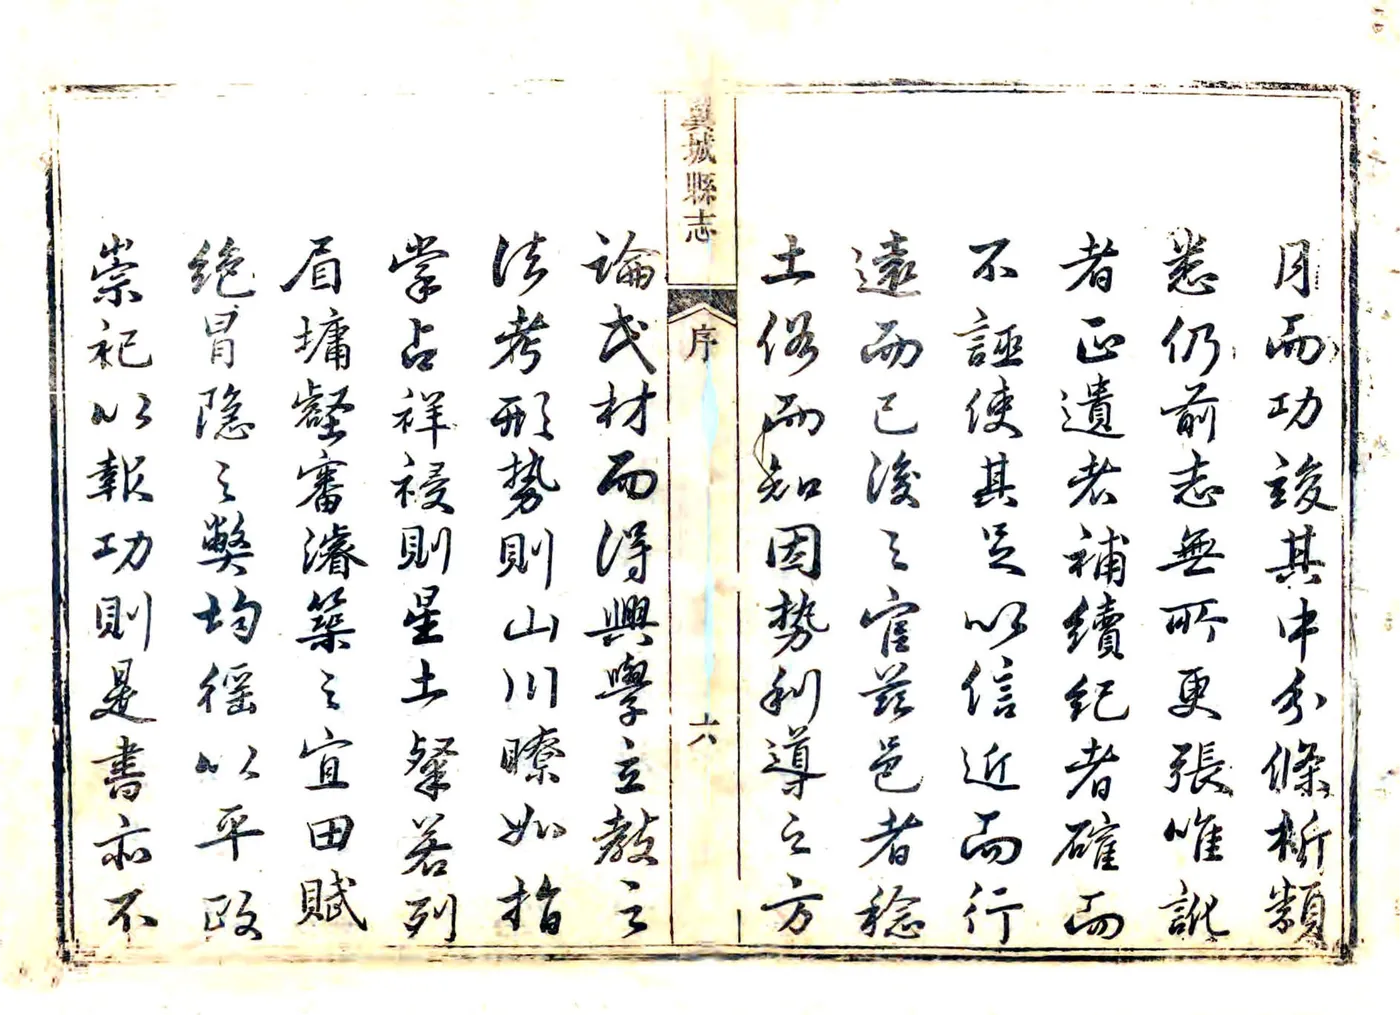 月而功竣其中分條析類
悉仍前志無所更張唯訛
者正遺者補續紀者確而
不誣使其足以信近而行
遠而已後之官茲邑者稔
土俗而知因勢利導之方
翼城縣志
序
六
論民材而得興學立教之
法考形勢則山川瞭如指
掌占祥祲則星土粲若列
眉墉壑審濬築之宜田賦
絶冒隐之弊均徭以平政
崇祀以報功則是書亦不